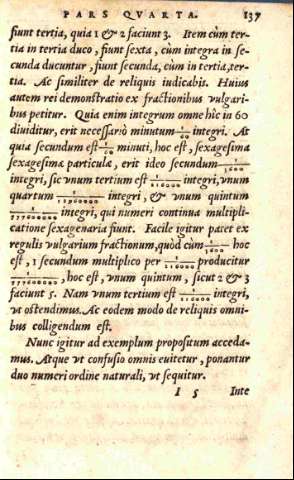 PARS QVARTA. 137
fiunt tertia, quia 1 & 2 faciunt 3. Item cùm ter-
tia in tertia duco, fiunt sexta, cùm integra in se-
cunda ducuntur, fiunt secunda, cùm in tertia, ter-
tia. Ac similiter de reliquis iudicabis. Huius
autem rei demonstratio ex fractionibus vulgari-
bus petitur. Quia enim integrum omne hîc in 60
diuiditur, erit necessariò minutum 1/60 integri. At
quia secundum est 1/60 minuti, hoc est, sexagesima
sexagesimæ particulæ, erit ideo secundum 1/3600
integri, sic vnum tertium est 1/216000 integri, vnum
quartum 1/12960000 integri, & vnum quintum
1/777600000 integri, qui numeri continua multipli-
catione sexagenaria fiunt. Facile igitur patet ex
regulis vulgarium fractionum, quòd cùm 1/3600 hoc
est, 1 secundum multiplico per 1/216000 producitur
1/777600000, hoc est, vnum quintum, sicut 2 & 3
faciunt 5. Nam vnum tertium est 1/216000 integri,
vt ostendimus. Ac eodem modo de reliquis omni-
bus colligendum est.
Nunc igitur ad exemplum propositum acceda-
mus. Atque vt confusio omnis euitetur, ponantur
duo numeri ordine naturali, vt sequitur.
I 5 Inte